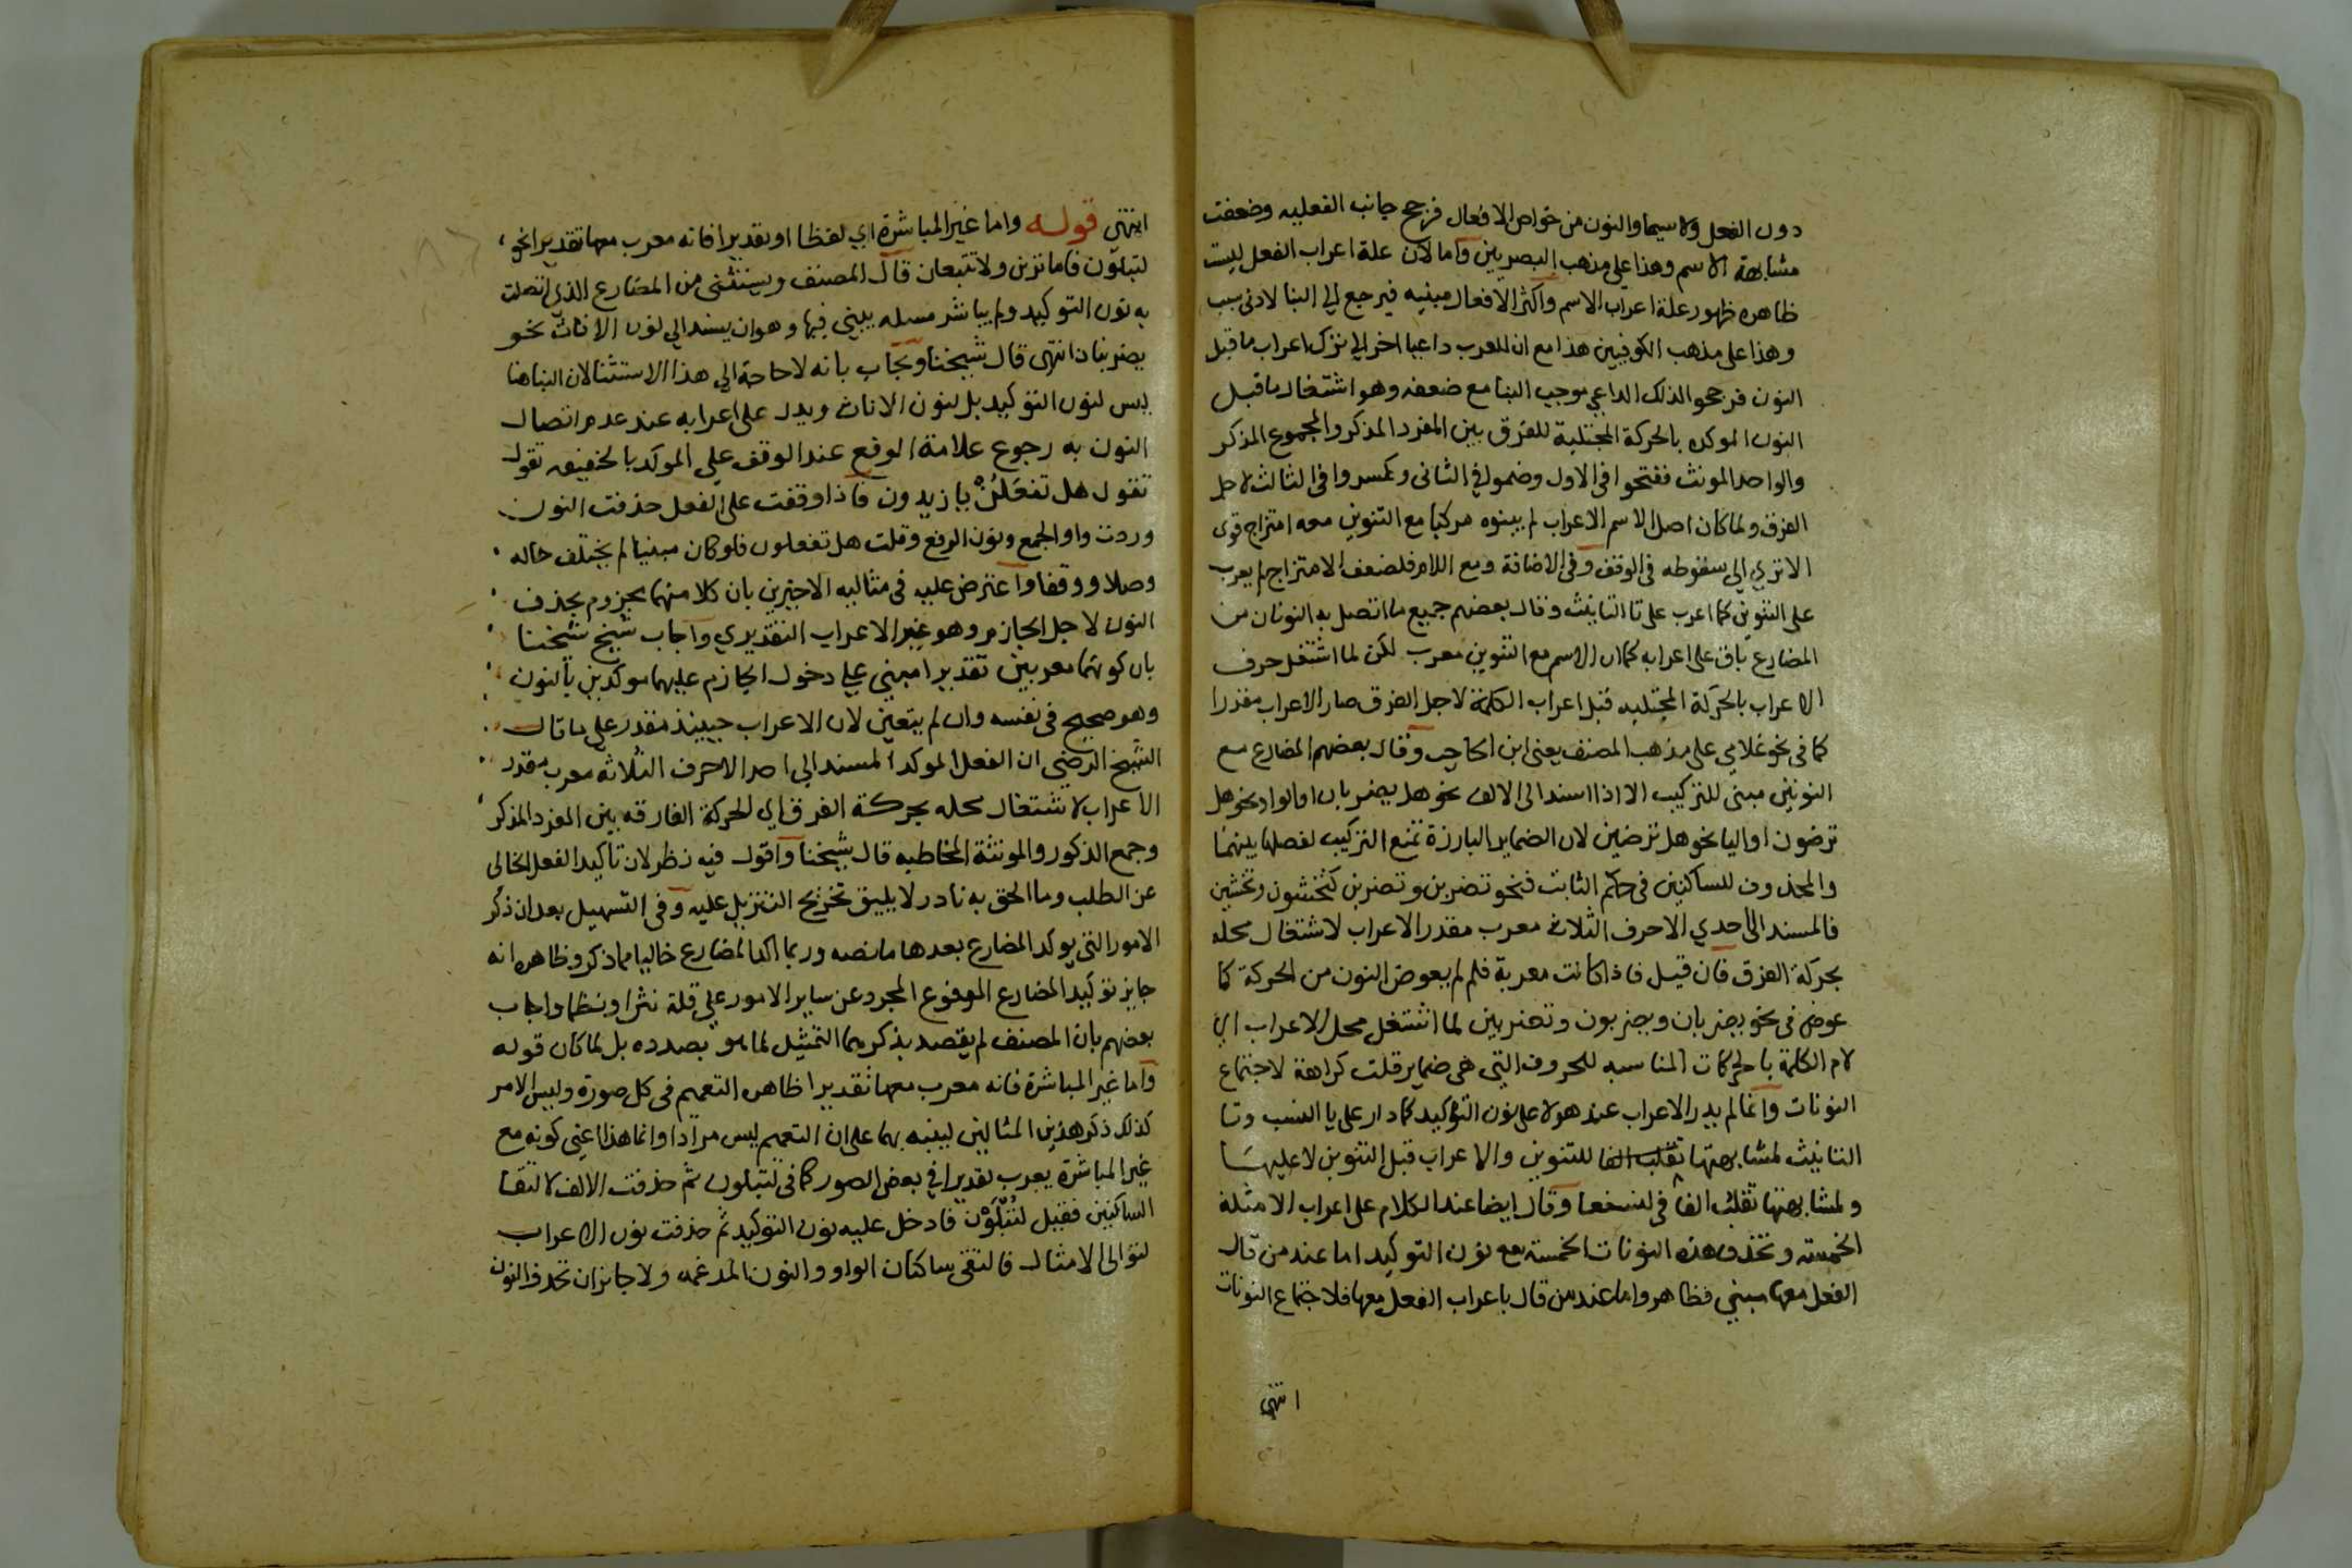 دون الفعل ولا سيما والنون من خواص الافعال فرجح جانب الفعليه وضعفت
مشابهة الاسم وهذا على مذهب البصريين واما لان علة اعراب الفعل ليست
ظاهره ظهور علة اعراب الاسم واكثر الافعال مبنيه فيرجع الى البنا لادنى سبب
وهذا على مذهب الكوفيين هذا مع ان للعرب داعيا اخر الى ترك اعراب ما قبل
النون فرجحوا لذلك الداعي موجب البنا مع ضعفه وهو اشتغال ما قبل
النون الموكده بالحركة المجتلبة للفرق بين المفرد المذكر والمجموع المذكر
والواحد المونث ففتحوا في الاول وضموا في الثاني وكسروا في الثالث لاجل
الفرق ولما كان اصل الاسم الاعراب لم يبنوه مركبا مع التنوين معه امتزاج قوى
الا تري الي سقوطه في الوقف وفي الاضافة ومع اللام فلضعف الامتزاج لم يعرب
على التنوين كما اعرب على تا التانيث وقال بعضهم جميع ما اتصل به النونان من
المضارع باق على اعرابه كما ان الاسم مع التنوين معرب لكن لما اشتغل حرف
الاعراب بالحركة المجتلبه قبل اعراب الكلمة لاجل الفرق صار الاعراب مقدرا
كما في نحو غلامي على مذهب المصنف يعني ابن الحاجب وقال بعضهم المضارع مع
النونين مبنى للتركيب الا اذا اسند الى الالف نحو هل يضربان او الواو نحو هل
ترضون او اليا نحو هل ترضين لان الضماير البارزة تمنع التركيب لفصلها بينهما
والمحذوف للساكنين في حكم الثابت فنحو تضربن وتضربن كتخشون وتخشين
فالمسند الى احدي الاحرف الثلاث معرب مقدر الاعراب لاشتغال محله
بحركة الفرق فان قيل فاذا كانت معربة فلم لم يعوض النون من الحركة كما
عوض في نحو يضربان ويضربون وتضربين لما اشتغل محل الاعراب اي
لام الكلمة بالحركات المناسبه للحروف التي هي ضماير قلت كراهة لاجتماع
النونات وانما لم يدر الاعراب عند هولا على نون التوكيد كما دار على يا النسب وتا
التانيث لمشابهتها للتنوين والاعراب قبل التنوين لا عليها
ولمشابهتها تقلب الفا في لنسفعا وقال ايضا عند الكلام على اعراب الامثلة
الخمسة وتحذف هذه النونات الخمسة مع نون التوكيد اما عند من قال
الفعل معها مبني فظاهر واما عند من قال باعراب الفعل معها فلاجتماع النونات
انتهى
انتهى قوله واما غير المباشرة اي لفظا او تقديرا فانه معرب معها تقديرا نحو
لتبلون فاما ترين ولا تتبعان قال المصنف ويستثنى من المضارع الذي اتصلت
به نون التوكيد ولم يباشر مسله يبني فيها وهو ان يسند الي نون الاناث نحو
يضربنان انتهى قال شيخنا ويجاب بانه لا حاجة الي هذا الاستثنا لان البنا هنا
ليس لنون التوكيد بل لنون الاناث ويدل على اعرابه عند عدم اتصال
النون به رجوع علامة الرفع عند الوقف علي الموكد بالخفيفه تقول
تقول هل تفعلن يا زيدون فاذا وقفت على الفعل حذفت النون
وردت واو الجمع ونون الرفع وقلت هل تفعلون فلو كان مبنيا لم يختلف حاله
وصلا ووقفا واعترض عليه في مثاليه الاخيرين بان كلا منهما مجزوم بحذف
النون لاجل الجازم وهو غير الاعراب التقديري واجاب شيخ شيخنا
بان كونهما معربين تقديرا مبني علي دخول الجازم عليهما موكدين بالنون
وهو صحيح في نفسه وان لم يتعين لان الاعراب حينيذ مقدر علي ما قال
الشيخ الرضي ان الفعل الموكد المسند الي احد الاحرف الثلاثه معرب مقدر
الاعراب لاشتغال محله بحركة الفرق اي الحركة الفارقه بين المفرد المذكر
وجمع الذكور والمونثة المخاطبه قال شيخنا واقول فيه نظر لان تاكيد الفعل الخالي
عن الطلب وما الحق به نادر لا يليق تخريج التنزيل عليه وفي التسهيل بعد ان ذكر
الامور التي يوكد المضارع بعدها ما نصه وربما اكد المضارع خاليا مما ذكر وظاهره انه
جايز توكيد المضارع المرفوع المجرد عن ساير الامور علي قلة نثرا ونظما واجاب
بعضهم بان المصنف لم يقصد بذكرهما التمثيل لما هو بصدده بل لما كان قوله
واما غير المباشرة فانه معرب معها تقديرا ظاهره التعميم في كل صورة وليس الامر
كذلك ذكر هذين المثالين لينبه بهما على ان التعميم ليس مرادا وانما هذا اعني كونه مع
غير المباشرة يعرب تقديرا في بعض الصور كما في لتبلون ثم حذفت الالف لالتقا
الساكنين فقيل لتبلون فادخل عليه نون التوكيد ثم حذفت نون الاعراب
لتوالى الامثال فالتقى ساكنان الواو والنون المدغمه ولا جايز ان تحذف النون